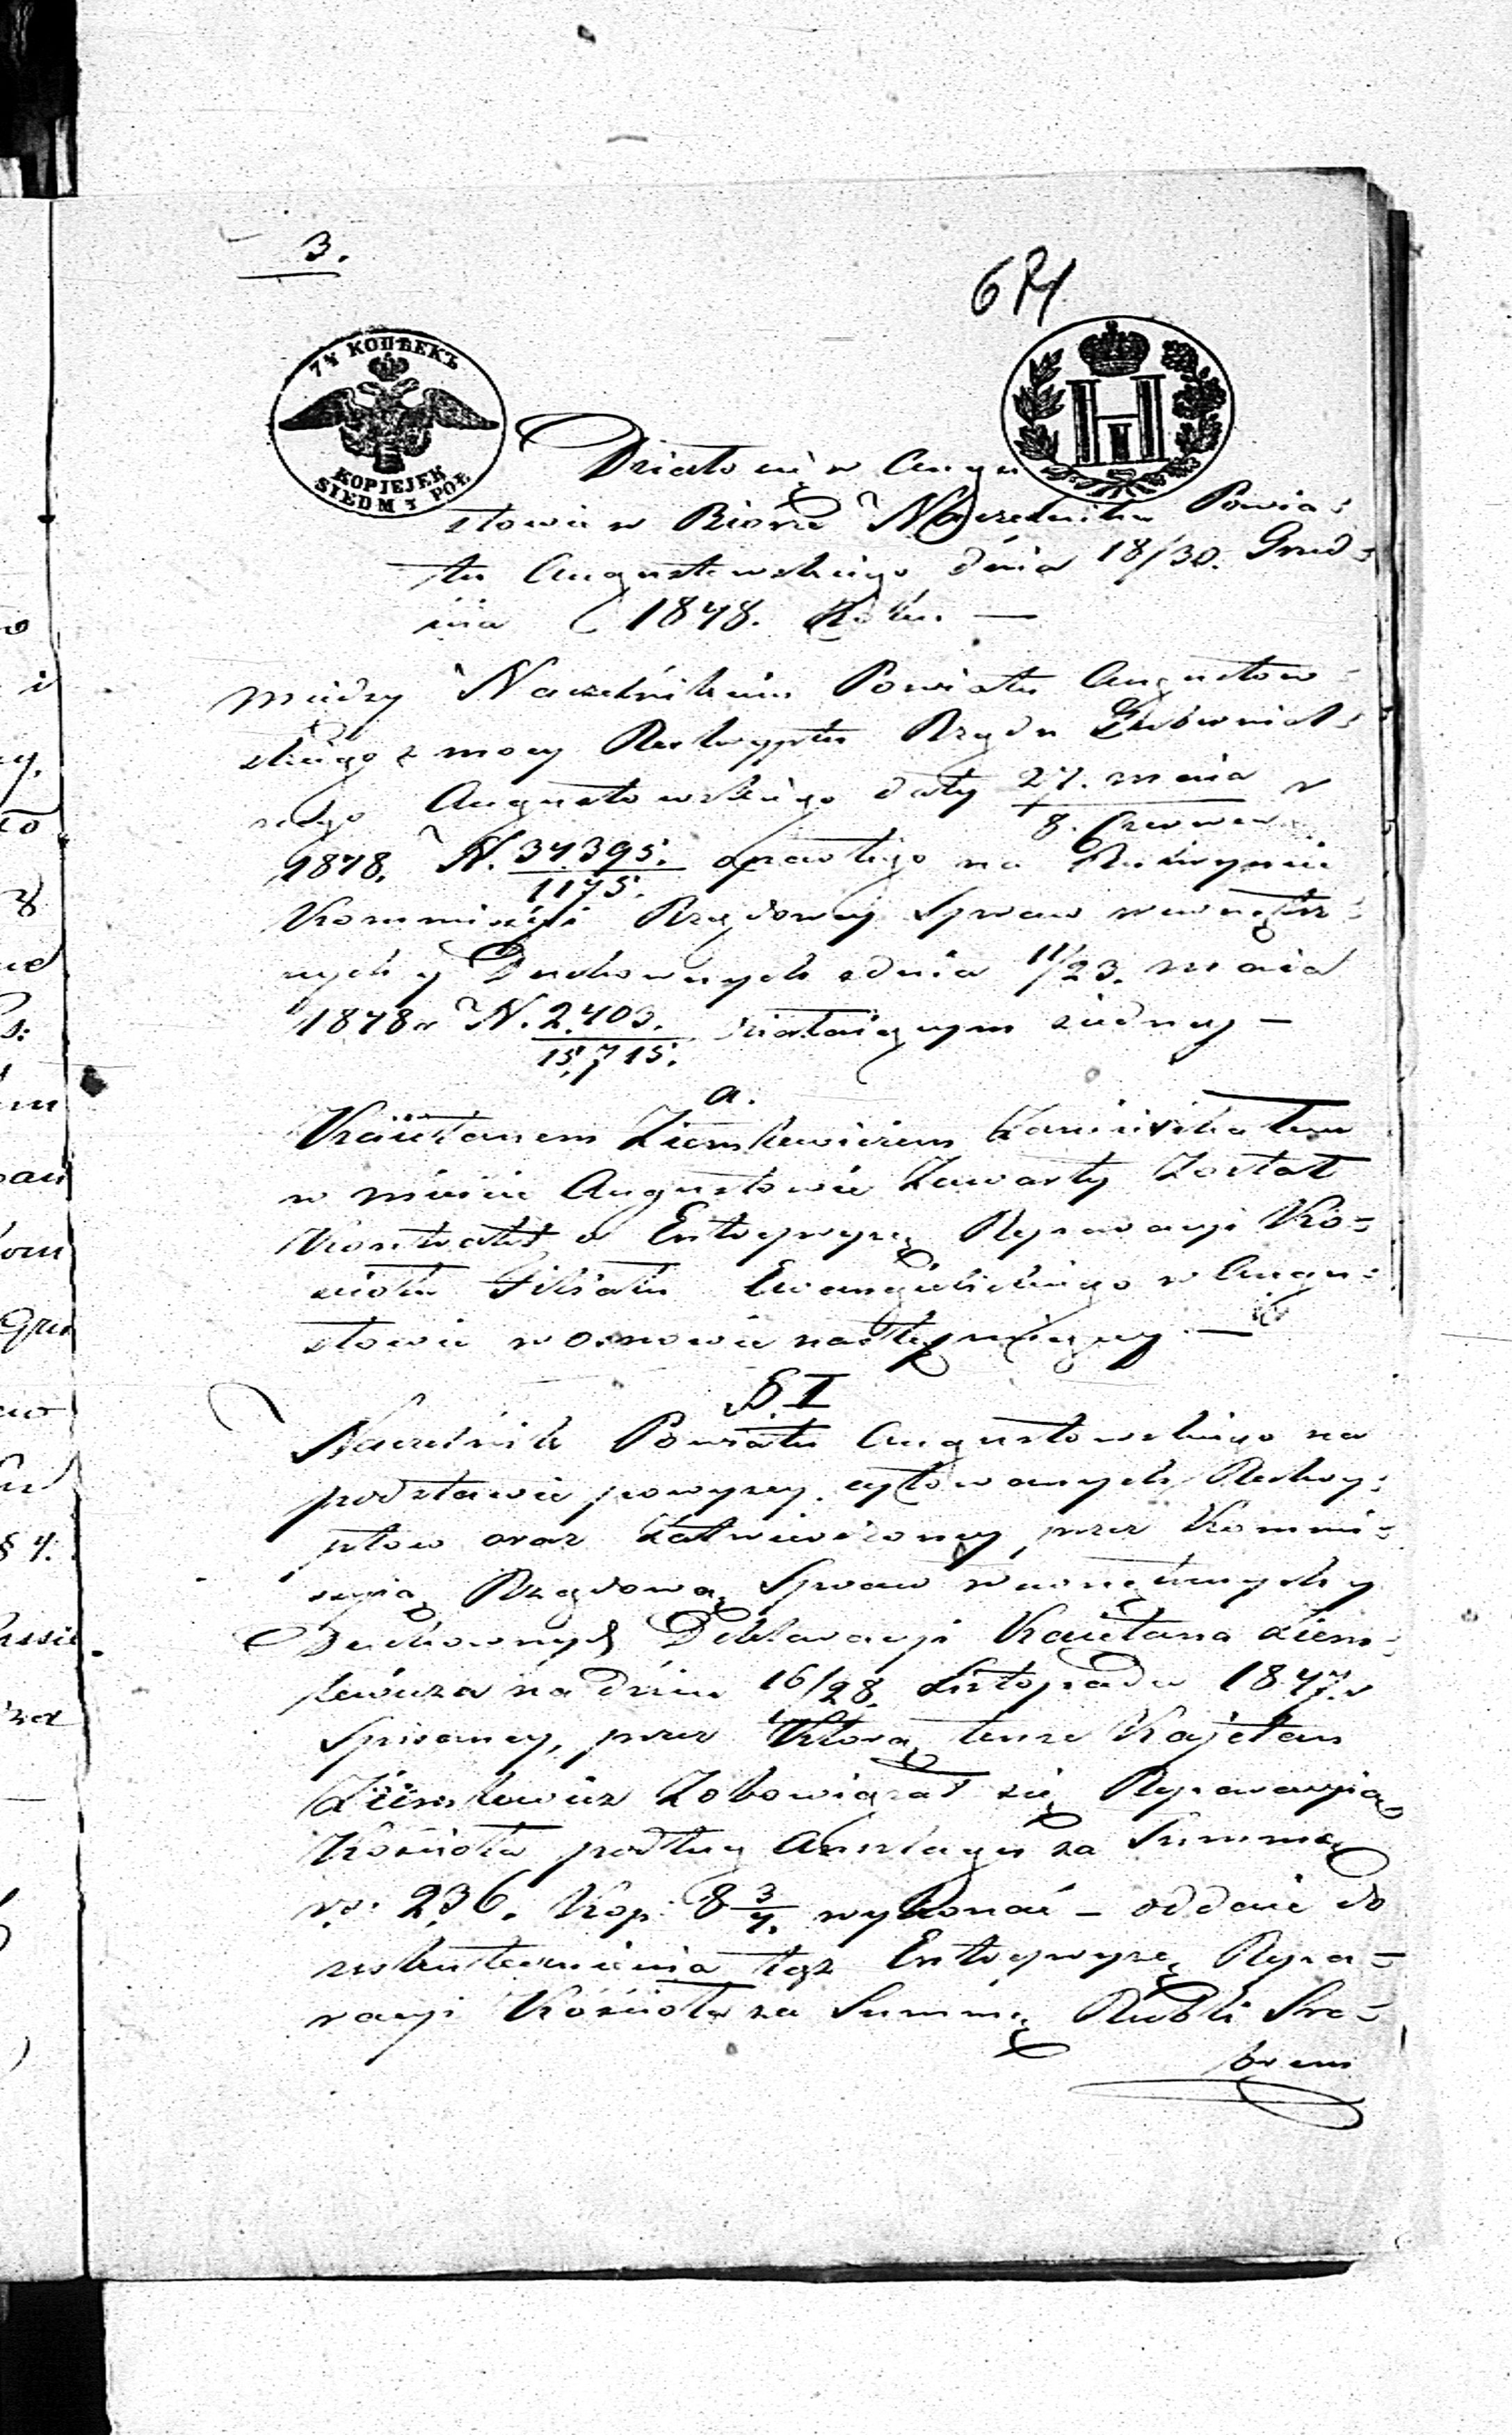 3.
674
7½ КОПѢЕКЪ
KOPIEJEK
SIEDM I PÓŁ
Działo się w Augu
stowie w Biórze Naczelnika Powia=
tu Augustowskiego dnia 18/30. Grud=
nia 1848. Roku. —
między Naczelnikiem Powiatu Augustow=
skiego z mocy Reskryptu Rządu Gubernial=
nego Augustowskiego daty 27. maia / 8. Czerwca r
1848. N. 34395. / 1175. opartego na Reskrypcie
Kommissyi Rządowey Spraw wewnętrz=
nych y Duchownych z dnia 11/23. maia
1848 r N. 2403. / 15,715. działaiącym z iedney —
a.
Kaietanem Ziemkewiczem Zamieszkałem
w mieście Augustowie Zawarty Został
Kontrakt o Entrepryzę Reperacyi Ko=
ścioła Filiału Ewangielickiego w Augu=
stowie w osnowie następuiącey —
§. I
Naczelnik Powiatu Augustowskiego na
podstawie powyżey cytowanych Reskry=
ptow oraz Zatwierdzoney przez Kommi=
ssyią Rządową Spraw wewnętrznych y
Duchownych Deklaracyi Kaietana Ziem=
kewicza na dniu 16/28. Listopada 1847. r
Spisaney, przez Którą tenże Kajetan
Ziemkewicz Zobowiązał się Reperacyią
Kościoła podług Anszlagu za Summę
rs: 236. Kop. 8 3/4. wykonać — oddaie do
uskutecznienia tęż Entrepryzę Repe=
racyi Kościoła za Summę Rubli Sre=
brem